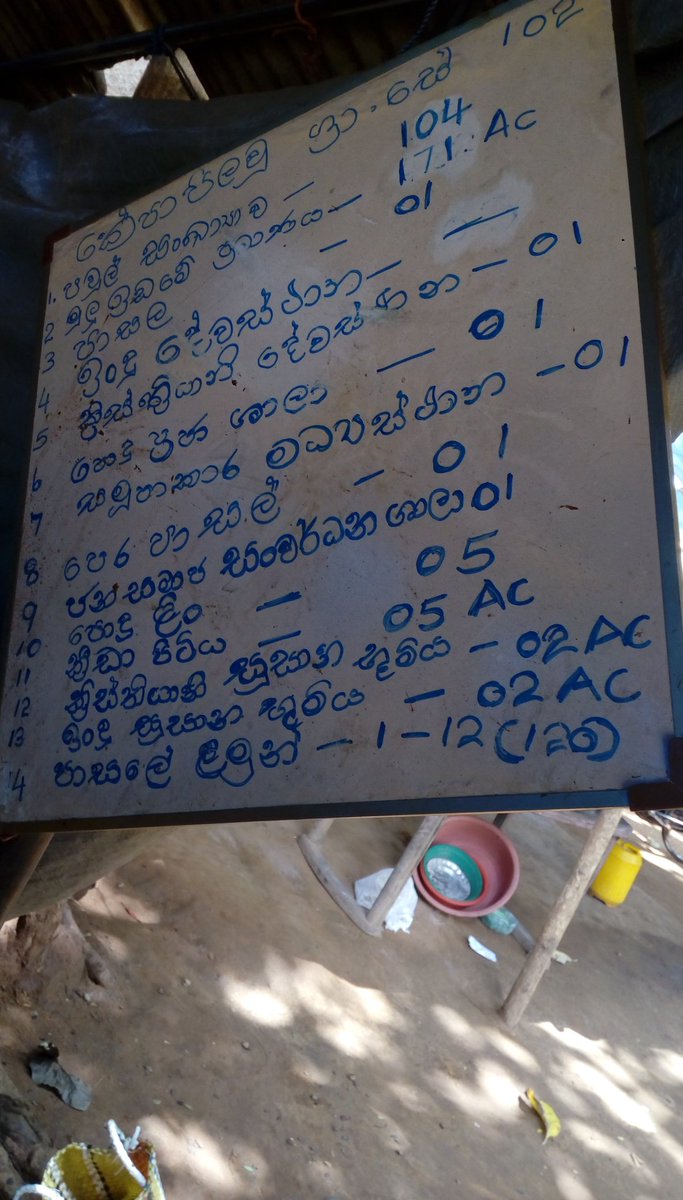 කේපාපිලවු ග්‍රා.සේ 102
1. පවුල් සංඛ්‍යාව — 104
2 මුලු ඉඩමේ ප්‍රමාණය — 171. AC
3 පාසල — 01
4 ඉංදු දේවස්ථාන — —
5 ක්‍රිස්තියානි දේවස්ථාන — 01
6 පොදු ශාලා — 01
7 සමූපාකාර මධ්‍යස්ථාන — 01
8 පෙර පාසල් — 01
9 ජනසමාජ සංවර්ධන ශාලා 01
10 පොදු ලිං — 05
11 ක්‍රීඩා පිටිය — 05 AC
12 ක්‍රිස්තියානි සුසාන භූමිය — 02 AC
13 ඉංදු සුසාන භූමිය — 02 AC
14 පාසලේ ළමුන් — 1 – 12